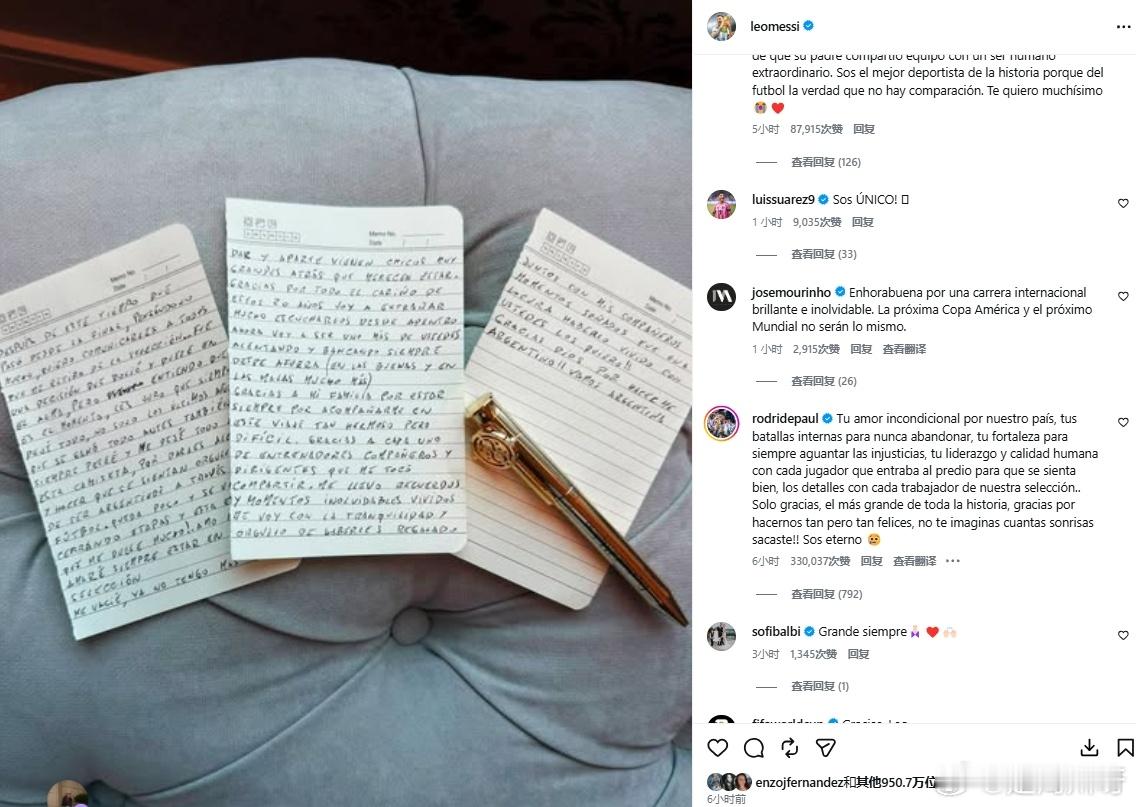 Memo No.
Date
DESPUÉS DE ESTE TIEMPO QUE
PASÓ DESDE LA FINAL, PENSÁNDOLO
MUCHO, QUIERO COMUNICARLES A TODOS
QUE ME RETIRO DE LA SELECCIÓN. FUE
UNA DECISIÓN QUE DOLIÓ Y DUELE EN
EL ALMA, PERO ENTIENDO QUE
ES EL MOMENTO. LES JURO QUE SIEMPRE
DEJÉ TODO, NO SOLO LOS ÚLTIMOS AÑOS
QUE SE GANÓ TODO, ANTES TAMBIÉN
SIEMPRE PELEÉ Y ME DEJÉ TODO
ESTA CAMISETA, POR DARLES
Y HACER QUE SE SIENTAN ORGULLOSOS
DE SER ARGENTINOS A TRAVÉS
FÚTBOL. QUEDA POCO Y SE
CERRANDO ETAPAS Y ESTA
QUE ME DUELE MUCHO. AMO
AMARÉ SIEMPRE ESTAR EN
SELECCIÓN.
ME VACIÉ, YA NO TENGO MÁS
Memo No.
Date
DAR Y APARTE VIENEN CHICOS MUY
GRANDES ATRÁS QUE MERECEN ESTAR.
GRACIAS POR TODO EL CARIÑO DE
ESTOS 20 AÑOS. VOY A EXTRAÑAR
MUCHO ESCUCHARLOS DESDE ADENTRO
AHORA VOY A SER UNO MÁS DE USTEDES
ALENTANDO Y BANCANDO SIEMPRE
DESDE AFUERA (EN LAS BUENAS Y EN
LAS MALAS MUCHO MÁS)
GRACIAS A MI FAMILIA POR ESTAR
SIEMPRE POR ACOMPAÑARME EN
ESTE VIAJE TAN HERMOSO PERO
DIFÍCIL. GRACIAS A CADA UNO
DE ENTRENADORES COMPAÑEROS Y
DIRIGENTES QUE ME TOCÓ
COMPARTIR, ME LLEVO RECUERDOS
Y MOMENTOS INOLVIDABLES VIVIDOS
ME VOY CON LA TRANQUILIDAD Y
ORGULLO DE HABERLES REGALADO
Memo No.
Date
JUNTOS CON MIS COMPAÑEROS
MOMENTOS SOÑADOS Y FUE UNA
LOCURA HABERLO VIVIDO CON
USTEDES. LOS QUIERO!!
GRACIAS DIOS POR HACERME
ARGENTINO!! VAMOS ARGENTINA
leomessi
de que su padre compartió equipo con un ser humano
extraordinario. Sos el mejor deportista de la historia porque del
futbol la verdad que no hay comparación. Te quiero muchísimo
😭 ❤️
5小时 87,915次赞 回复
查看回复 (126)
luissuarez9 Sos ÚNICO!
1小时 9,035次赞 回复
查看回复 (33)
josemourinho Enhorabuena por una carrera internacional
brillante e inolvidable. La próxima Copa América y el próximo
Mundial no serán lo mismo.
1小时 2,915次赞 回复 查看翻译
查看回复 (26)
rodridepaul Tu amor incondicional por nuestro país, tus
batallas internas para nunca abandonar, tu fortaleza para
siempre aguantar las injusticias, tu liderazgo y calidad humana
con cada jugador que entraba al predio para que se sienta
bien, los detalles con cada trabajador de nuestra selección..
Solo gracias, el más grande de toda la historia, gracias por
hacernos tan pero tan felices, no te imaginas cuantas sonrisas
sacaste!! Sos eterno 🥹
6小时 330,037次赞 回复 查看翻译
查看回复 (792)
sofibalbi Grande siempre ❤️
3小时 1,345次赞 回复
查看回复 (1)
fifaworldcup Gracias, Leo
enzojfernandez和其他950.7万位
6小时前